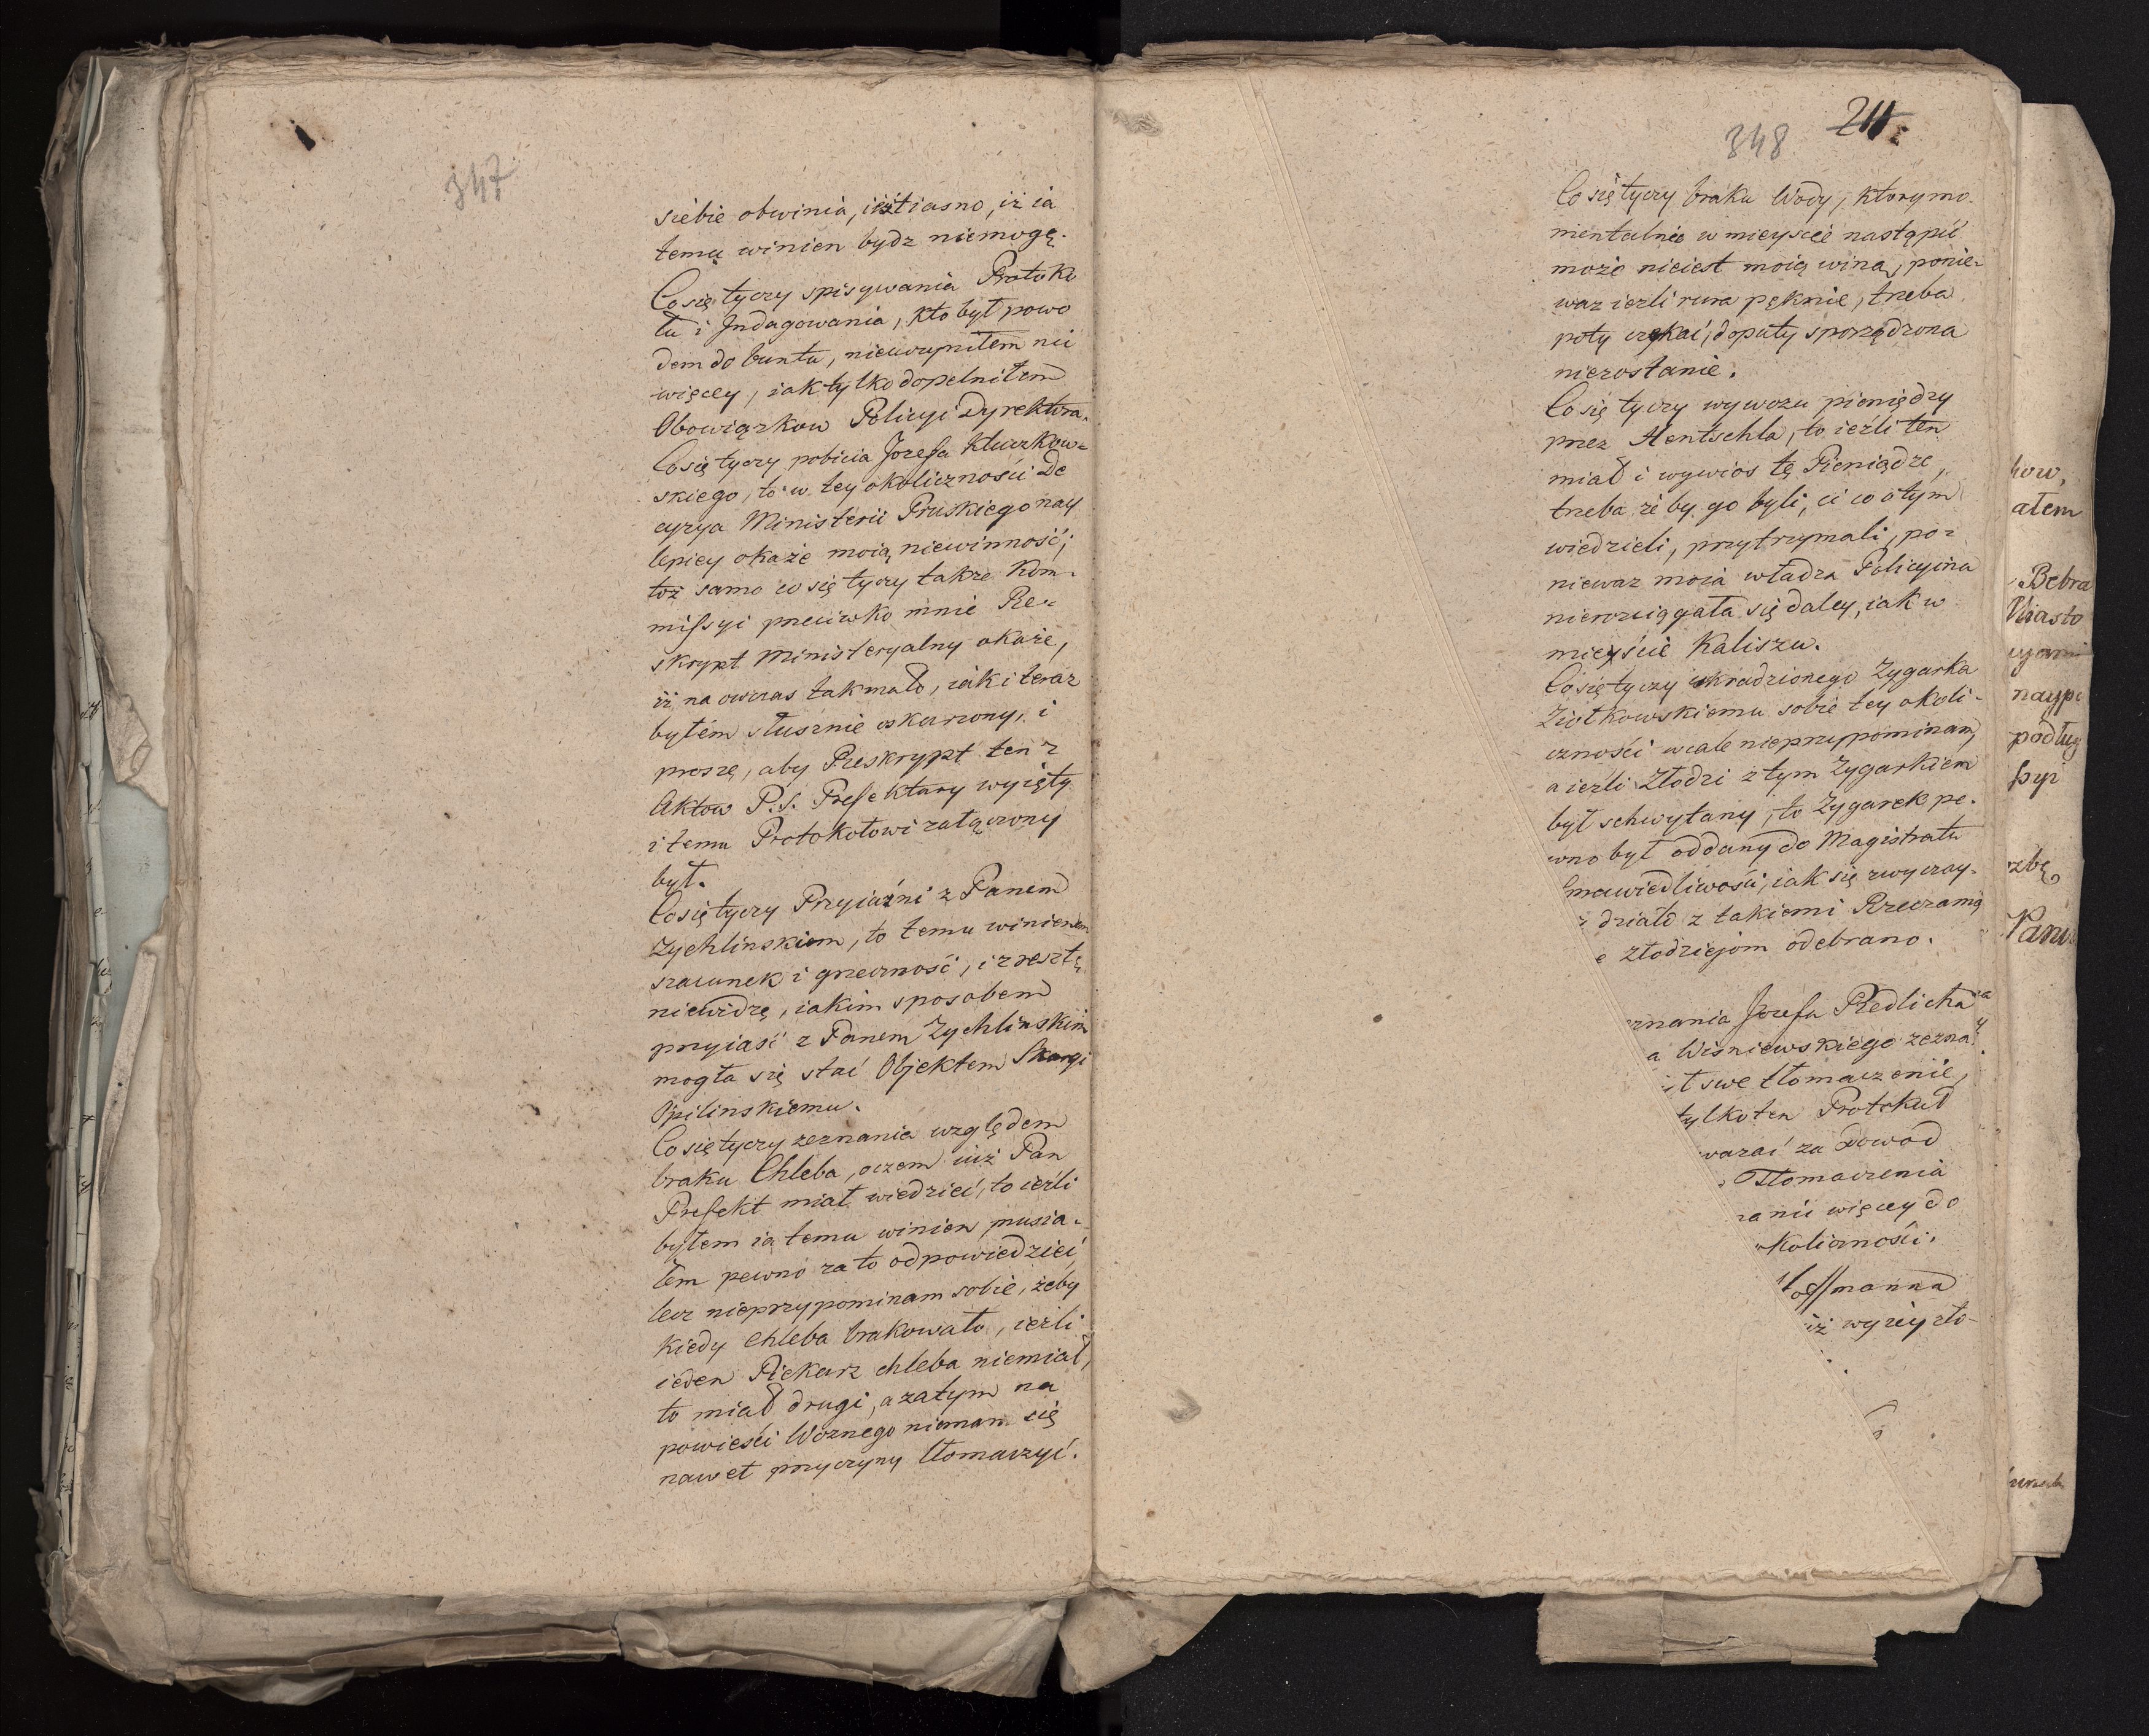 347
siebie obwinia, iest iasno, iż ia
temu winien bydz niemogę.
Co się tyczy spisywania Protoko
łu i Jndagowania, kto był powo
dem do buntu, nieuczyniłem nic
więcey, iak tylko dopełniłem
Obowiązkow Policyi Dyrektora.
Co się tyczy pobicia Jozefa Kluczkow=
skiego, to w tey okoliczności De
cyzya Ministerii Pruskiego nay
lepiey okaże moią niewinność;
toż samo co się tyczy także Kom=
missyi przeciwko mnie Re=
skrypt Ministeryalny okaże,
iż na owczas tak mało, iak i teraz
byłem słusznie oskarzony, i
proszę, aby Reskrypt ten z
Aktow P. S. Prefektary wyięty
i temu Protokołowi załączony
był.
Co się tyczy Przyiaźni z Panem
Zychlinskiem, to temu winienem
szacunek i grzeczność, i zresztę
niewidzę, iakim sposobem
przyiaść z Panem Zychlinskim
mogła się stać Objektem Skargi
Opilinskiemu.
Co się tyczy zeznania względem
braku Chleba, oczem iuż Pan
Prefekt miał wiedzieć, to ieźli
byłem ia temu winien, musia=
łem pewno za to odpowiedzieć,
lecz nieprzypominam sobie, żeby
kiedy Chleba brakowało, ieźli
ieden Piekarz chleba niemiał,
to miał drugi, a zatym na
powieści Woznego niemam się
nawet przyczyny tłomaczyć.
348 211
Co się tyczy braku Wody, ktory mo=
mentalnie w mieyscie nastąpić
może nieiest moią winą, ponie=
waz iezli rura pęknie, trzeba
poty czekać, doputy sporządzona
niezostanie.
Co się tyczy wywozu pieniędzy
przez Hentschla, to ieźli ten
miał i wywiosł tę Pieniądze,
trzeba żeby go byli, ci co o tym
wiedzieli, przytrzymali, po=
niewaz moia władza Policyina
nierozciągała się daley, iak w
mieyście Kaliszu.
Co się tyczy ukradzionego Zygarka
Ziołkowskiemu sobie tey okoli=
czności wcale nieprzypominam,
a ieźli Złodzi z tym Zygarkiem
był schwytany, to Zygarek pe=
wno był oddany do Magistratu
Sprawiedliwości, iak się zwyczay=
działo z takiemi Rzeczami
złodziejom odebrano.
znania Jozefa Redlicha
a Wisniewskiego zezna
t swe tłomaczenie,
tylko ten Protokuł
ważać za Dowod
Tłomaczenia
nic więcey do
koliczności.
Hoffmanna
iż wyżey zło=
kow,
ałem
Bebra
Miasto
cyami
naypo
podług
ssyi
zbę
Panu